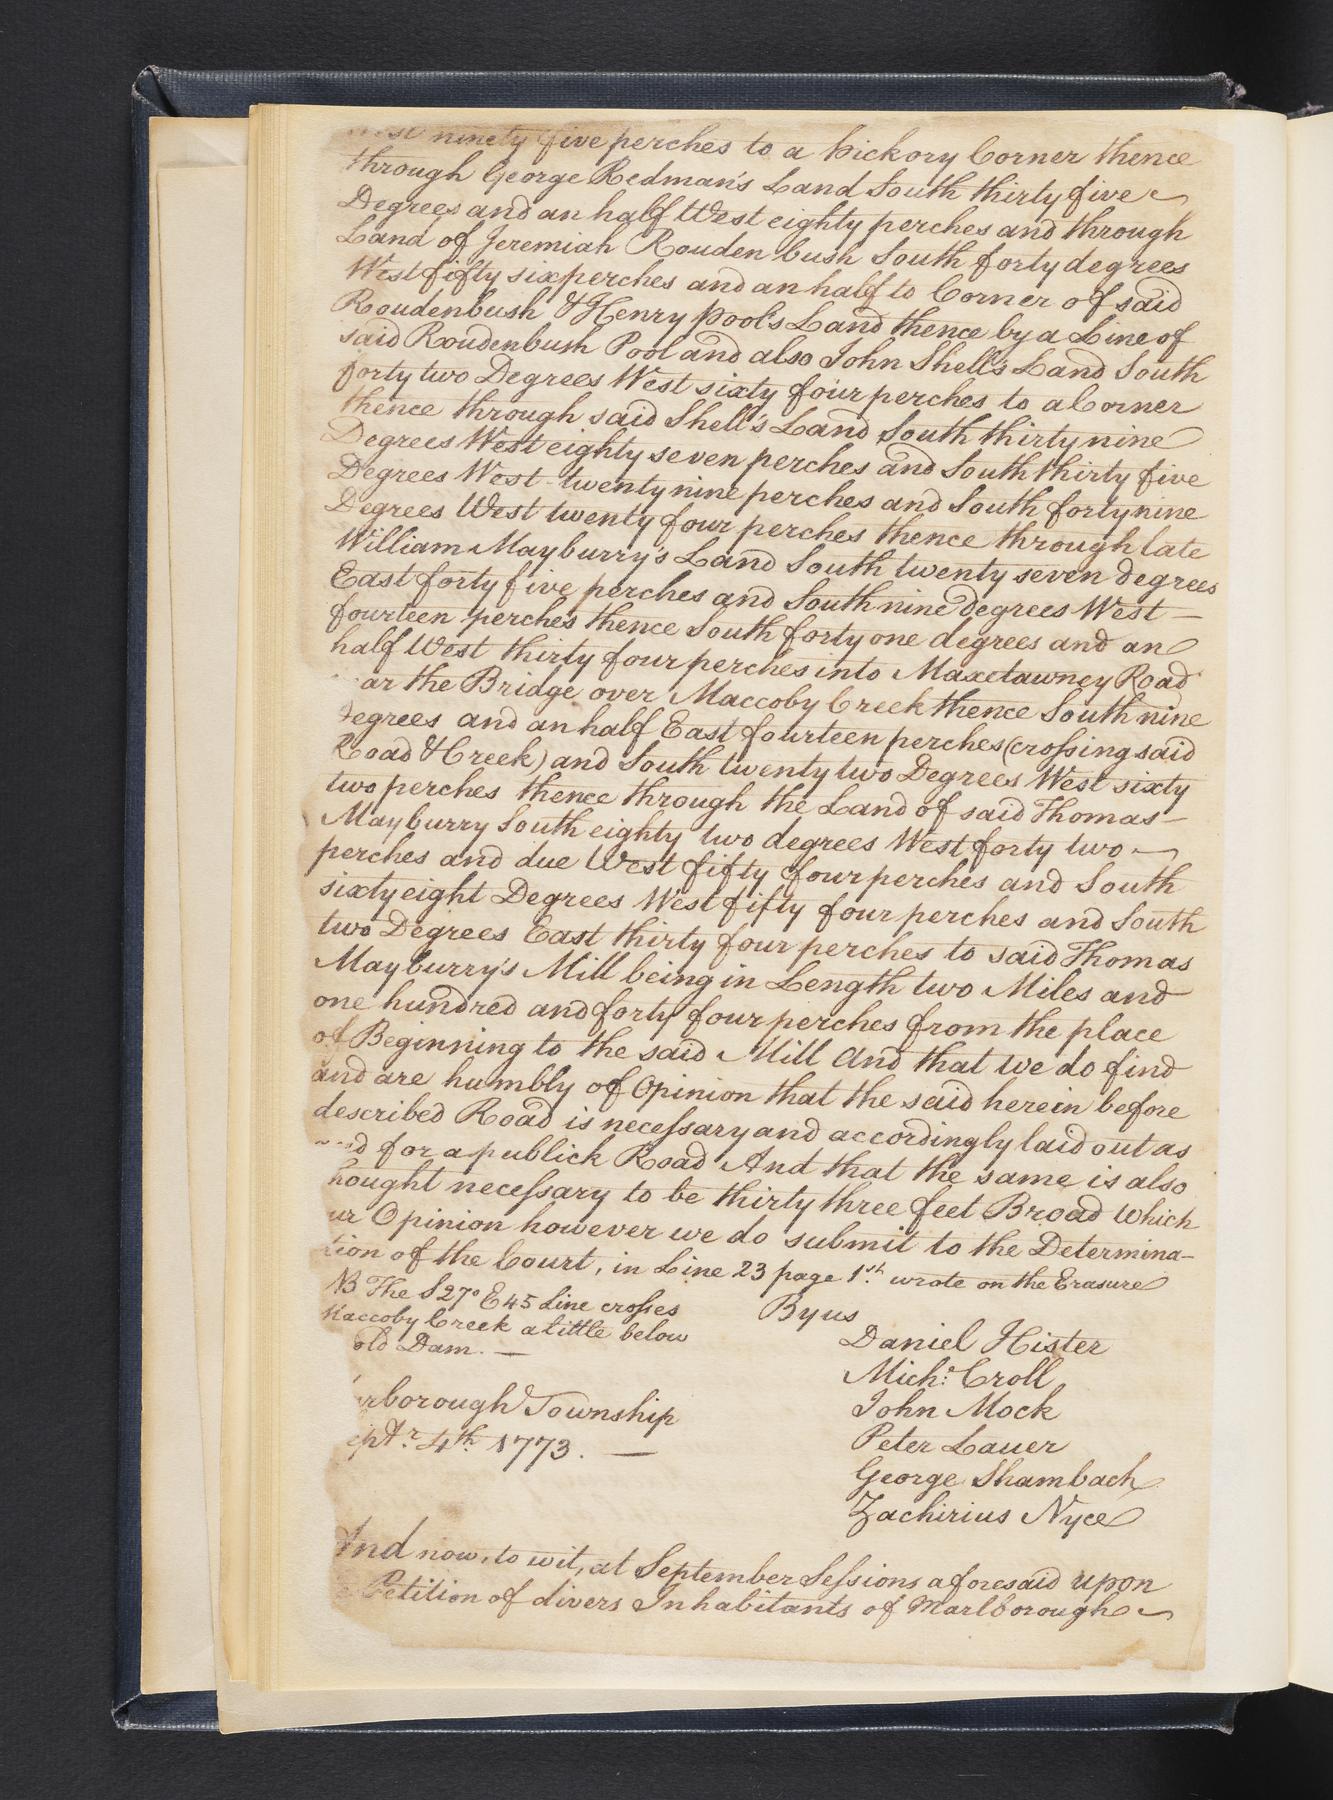 ninety five perches to a hickory Corner thence
through George Redman's Land South thirty five
Degrees and an half West eighty perches and through
Land of Jeremiah Rouden bush South forty degrees
West fifty six perches and an half to Corner of said
Roudenbush & Henry pool's Land thence by a Line of
said Roudenbush Pool and also John Shell's Land South
forty two Degrees West sixty four perches to a Corner
thence through said Shell's Land South thirty nine
Degrees West eighty seven perches and South thirty five
Degrees West twenty nine perches and South forty nine
Degrees West twenty four perches thence through late
William Mayburry's Land South twenty seven degrees
East forty five perches and South nine degrees West —
fourteen perches thence South forty one degrees and an
half West thirty four perches into Maxetawney Road
ar the Bridge over Maccoby Creek thence South nine
degrees and an half East fourteen perches (crossing said
Road & Creek) and South twenty two Degrees West sixty
two perches thence through the Land of said Thomas —
Mayburry South eighty two degrees West forty two —
perches and due West fifty four perches and South
sixty eight Degrees West fifty four perches and South
two Degrees East thirty four perches to said Thomas
Mayburry's Mill being in Length two Miles and
one hundred and forty four perches from the place
of Beginning to the said Mill And that we do find
and are humbly of Opinion that the said herein before
described Road is necessary and accordingly laid out as
d for a publick Road And that the same is also
hought necessary to be thirty three feet Broad which
ur Opinion however we do submit to the Determina-
tion of the Court, in Line 23 page 1st. wrote on the Erasure
NB The S 27° E 45 Line crosses
Maccoby Creek a little below
old Dam. —
By us
Daniel Hister
Mich: Croll
John Mock
Peter Lauer
George Shambach
Zachirius Nyce
arborough Township
eptr. 4th 1773. —
And now, to wit, at September Sessions aforesaid upon
e Petition of divers Inhabitants of Marlborough